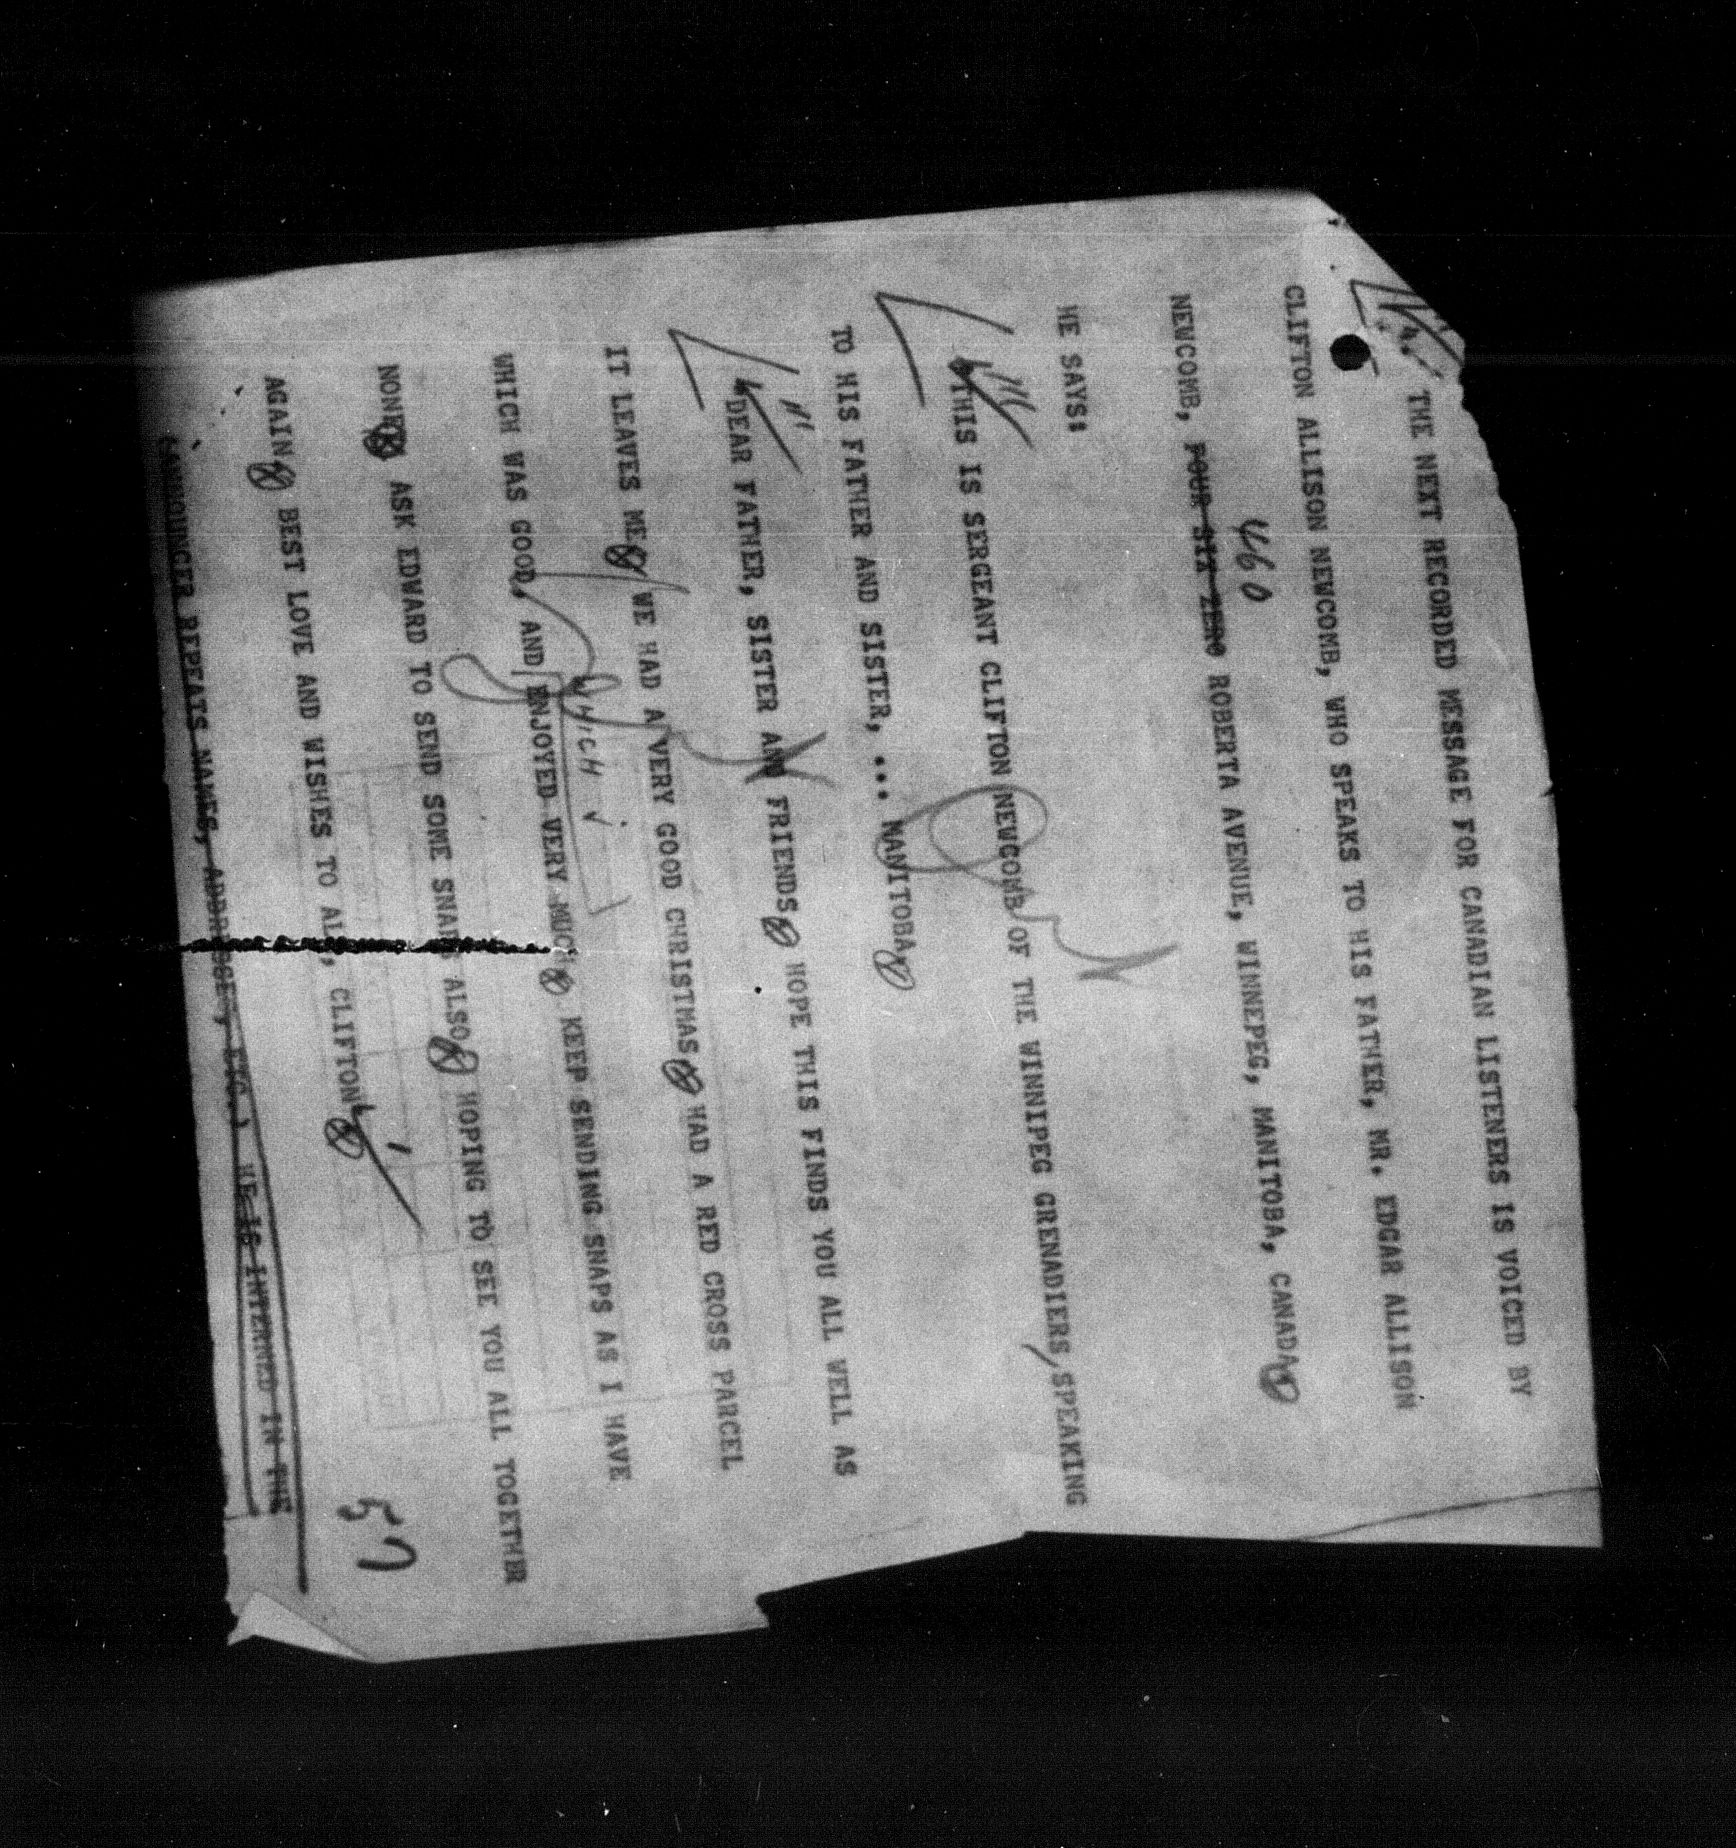 4. THE NEXT RECORDED MESSAGE FOR CANADIAN LISTENERS IS VOICED BY
CLIFTON ALLISON NEWCOMB, WHO SPEAKS TO HIS FATHER, MR. EDGAR ALLISON
460
NEWCOMB, FOUR SIX ZERO ROBERTA AVENUE, WINNEPEG, MANITOBA, CANADA
HE SAYS:
"THIS IS SERGEANT CLIFTON NEWCOMB OF THE WINNIPEG GRENADIERS SPEAKING
TO HIS FATHER AND SISTER, ... MANITOBA.
"DEAR FATHER, SISTER AND FRIENDS HOPE THIS FINDS YOU ALL WELL AS
IT LEAVES ME WE HAD A VERY GOOD CHRISTMAS HAD A RED CROSS PARCEL
WHICH WAS GOOD, AND ENJOYED VERY MUCH KEEP SENDING SNAPS AS I HAVE
WHICH
NONE ASK EDWARD TO SEND SOME SNAPS ALSO HOPING TO SEE YOU ALL TOGETHER
AGAIN BEST LOVE AND WISHES TO ALL, CLIFTON
(ANNOUNCER REPEATS NAMES, ADDRESS, ETC.) HE IS INTERNED IN THE